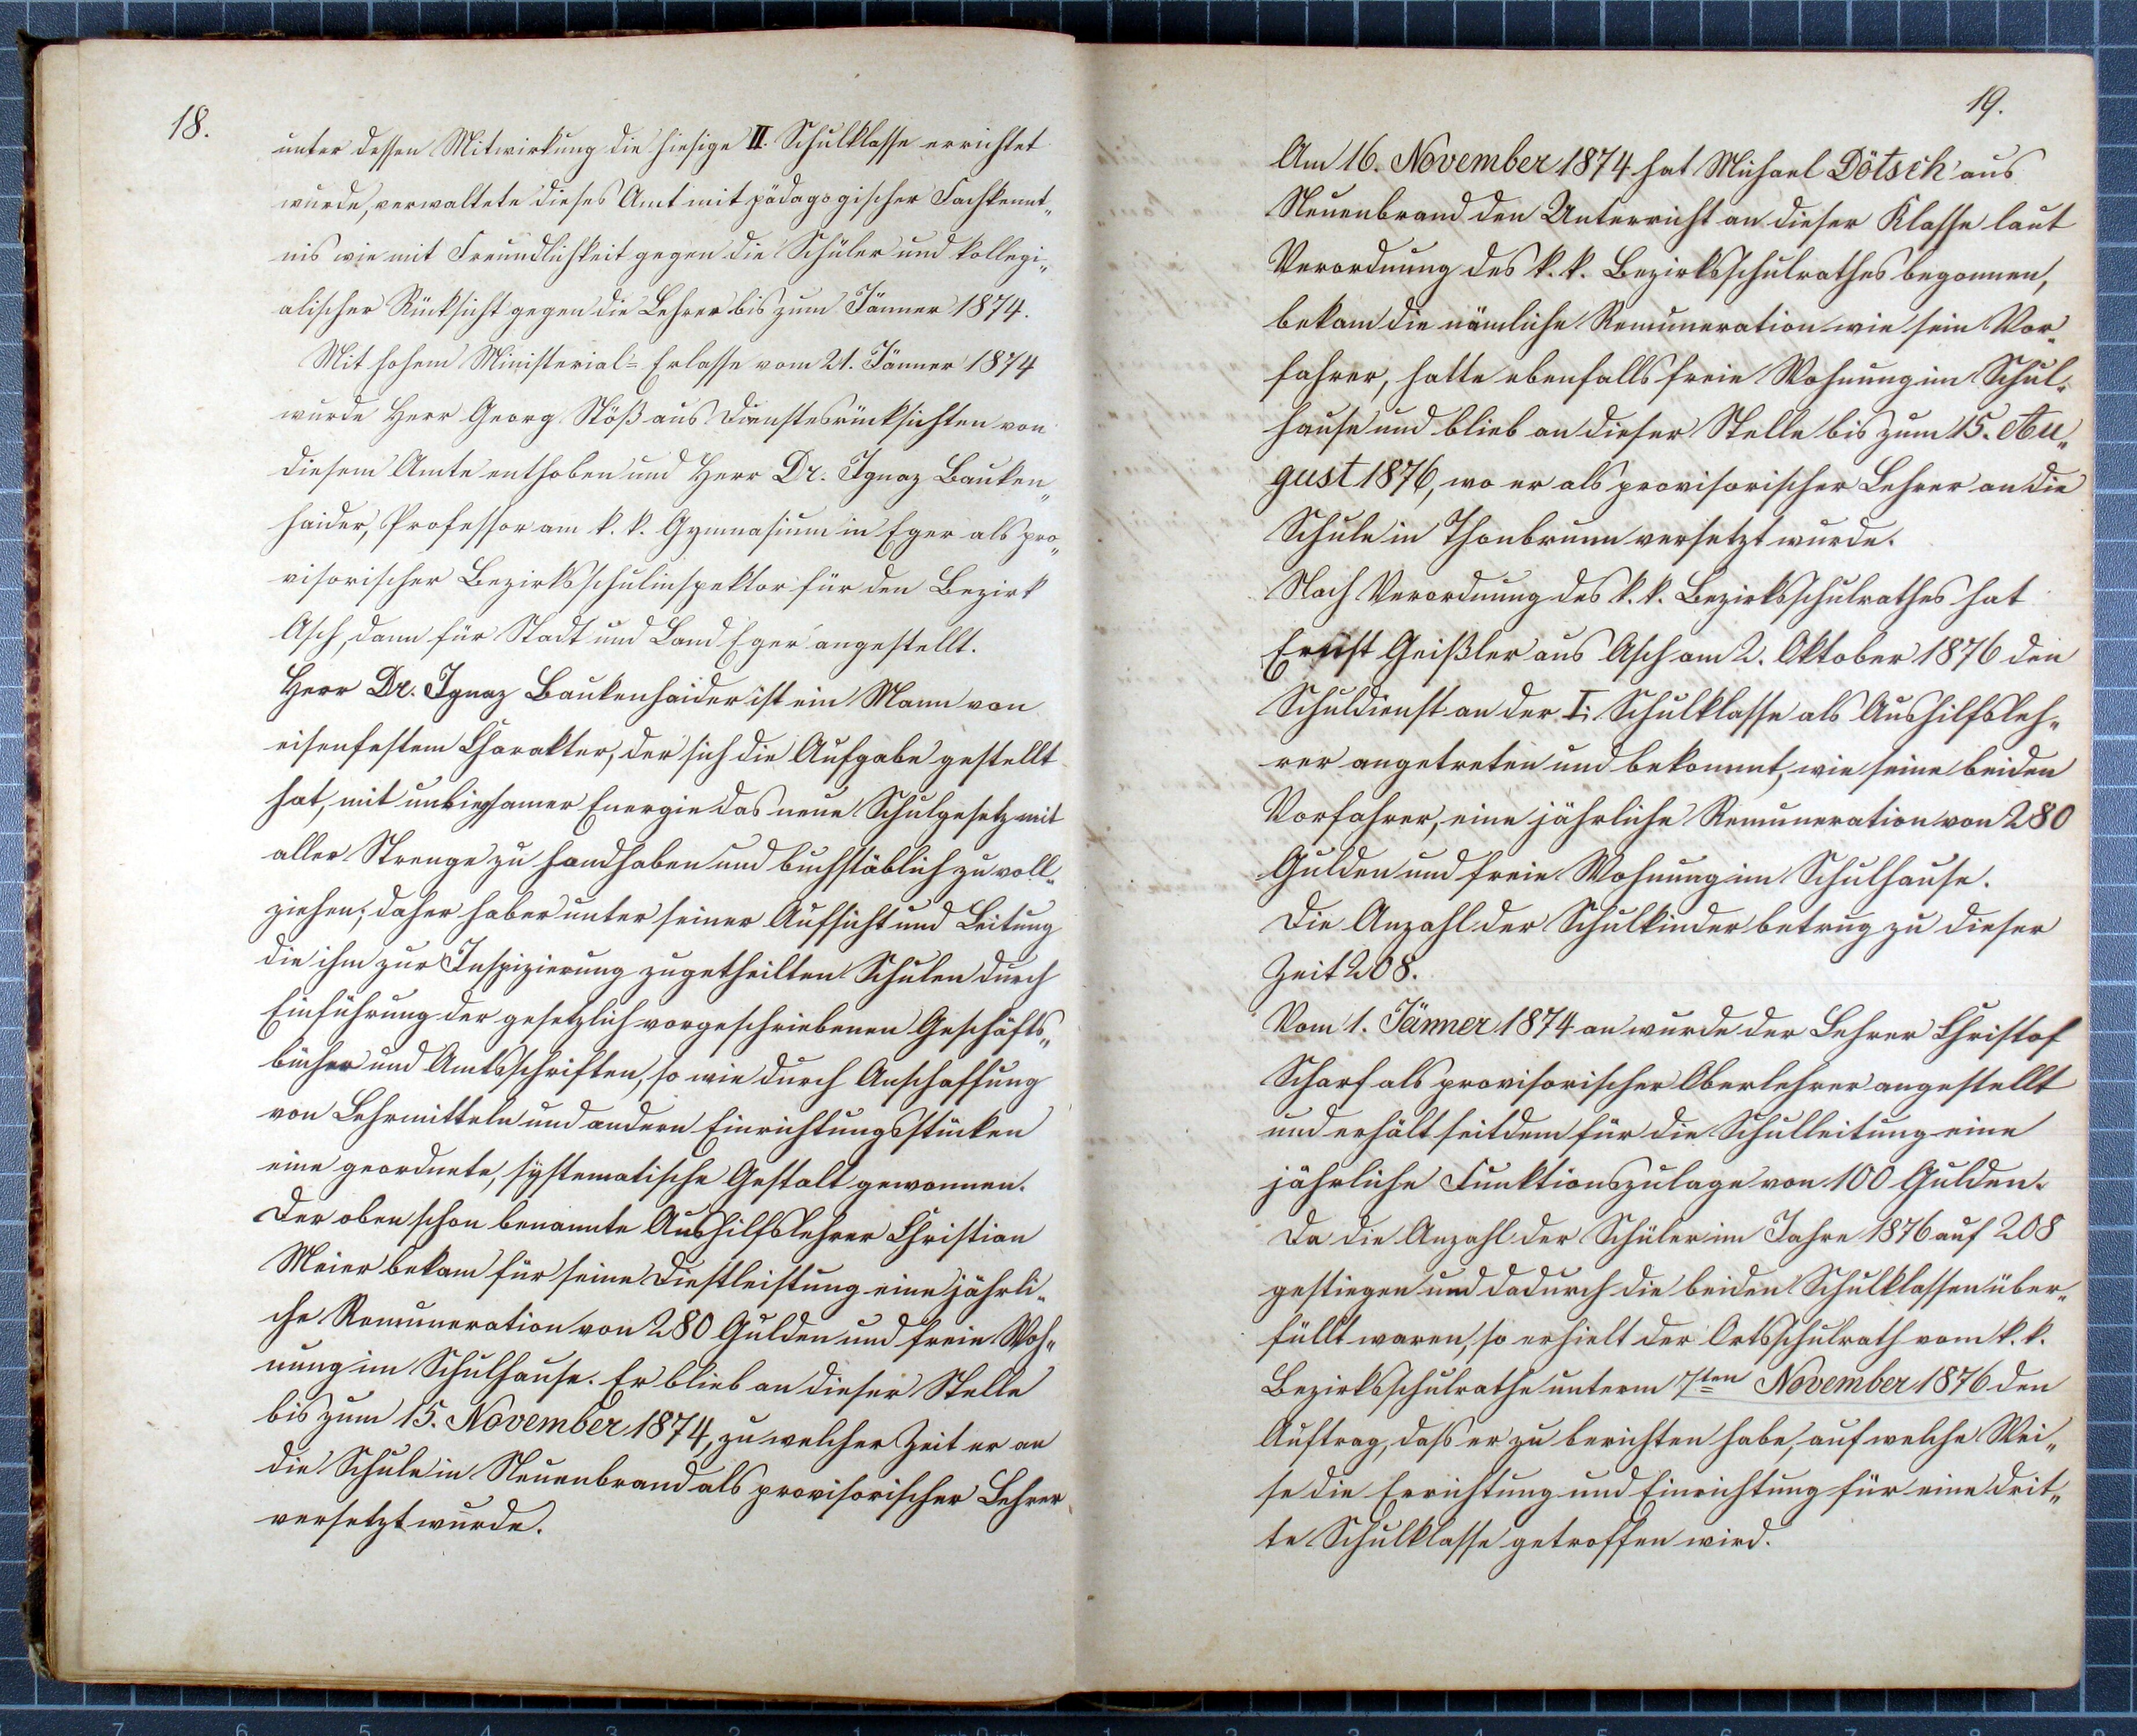 18.
unter dessen Mitwirkung die hiesige II. Schulklasse errichtet
wurde, verwaltete dieses Amt mit pädagogischer Fachkennt„
nis wie mit Freundlichkeit gegen die Schüler und kollegi„
alischer Rücksicht gegen die Lehrer bis zum Jänner 1874.
Mit hohem Ministerial= Erlasse vom 21. Jänner 1874
wurde Herr Georg Stöß aus Dienstesrücksichten von
diesem Amte enthoben und Herr Dr. Ignaz Bauken„
haider, Professor am k. k. Gymnasium in Eger als pro„
visorischer Bezirksschulinspektor für den Bezirk
Asch, dann für Stadt und Land Eger angestellt.
Herr Dr. Ignaz Baukenhaider ist ein Mann von
eisenfestem Charakter, der sich die Aufgabe gestellt
hat, mit unbiegsamer Energie das neue Schulgesetz mit
aller Strenge zu handhaben und buchstäblich zu voll„
ziehen; daher haben unter seiner Aufsicht und Leitung
die ihm zur Inspizierung zugetheilten Schulen durch
Einführung der gesetzlich vorgeschriebenen Geschäfts„
bücher und Amtsschriften, so wie durch Anschaffung
von Lehrmitteln und andern Einrichtungsstücken
eine geordnete, systematische Gestalt gewonnen.
Der oben schon benannte Aushilfslehrer Christian
Meier bekam für seine Diestleistung eine jährli„
che Remuneration von 280 Gulden und freie Woh„
nung im Schulhause. Er blieb an dieser Stelle
bis zum 15. November 1874, zu welcher Zeit er an
die Schule in Neuenbrand als provisorischer Lehrer
versetzt wurde.
19.
Am 16. November 1874 hat Michael Dötsch aus
Neuenbrand den Unterricht an dieser Klasse laut
Verordnung des k. k. Bezirksschulrathes begonnen,
bekam die nämliche Remuneration wie sein Vor„
fahrer, hatte ebenfalls freie Wohnung im Schul„
hause und blieb an dieser Stelle bis zum 15. Au„
gust 1876, wo er als provisorischer Lehrer an die
Schule in Thonbrunn versetzt wurde.
Nach Verordnung des k. k. Bezirksschulrathes hat
Ernst Geißler aus Asch am 2. Oktober 1876 den
Schuldienst an der I. Schulklasse als Aushilfsleh„
rer angetreten und bekommt, wie seine beiden
Vorfahrer, eine jährliche Remuneration von 280
Gulden und freie Wohnung im Schulhause.
Die Anzahl der Schulkinder betrug zu dieser
Zeit 208.
Vom 1. Jänner 1874 an wurde der Lehrer Christof
Scharf als provisorischer Oberlehrer angestellt
und erhält seitdem für die Schulleitung eine
jährliche Funktionszulage von 100 Gulden.
Da die Anzahl der Schüler im Jahre 1876 auf 208
gestiegen und dadurch die beiden Schulklassen über„
füllt waren, so erhielt der Ortsschulrath vom k. k.
Bezirksschulrathe unterm 7ten November 1876 den
Auftrag, daß er zu berichten habe, auf welche Wei„
se die Errichtung und Einrichtung für eine drit„
te Schulklasse getroffen wird.